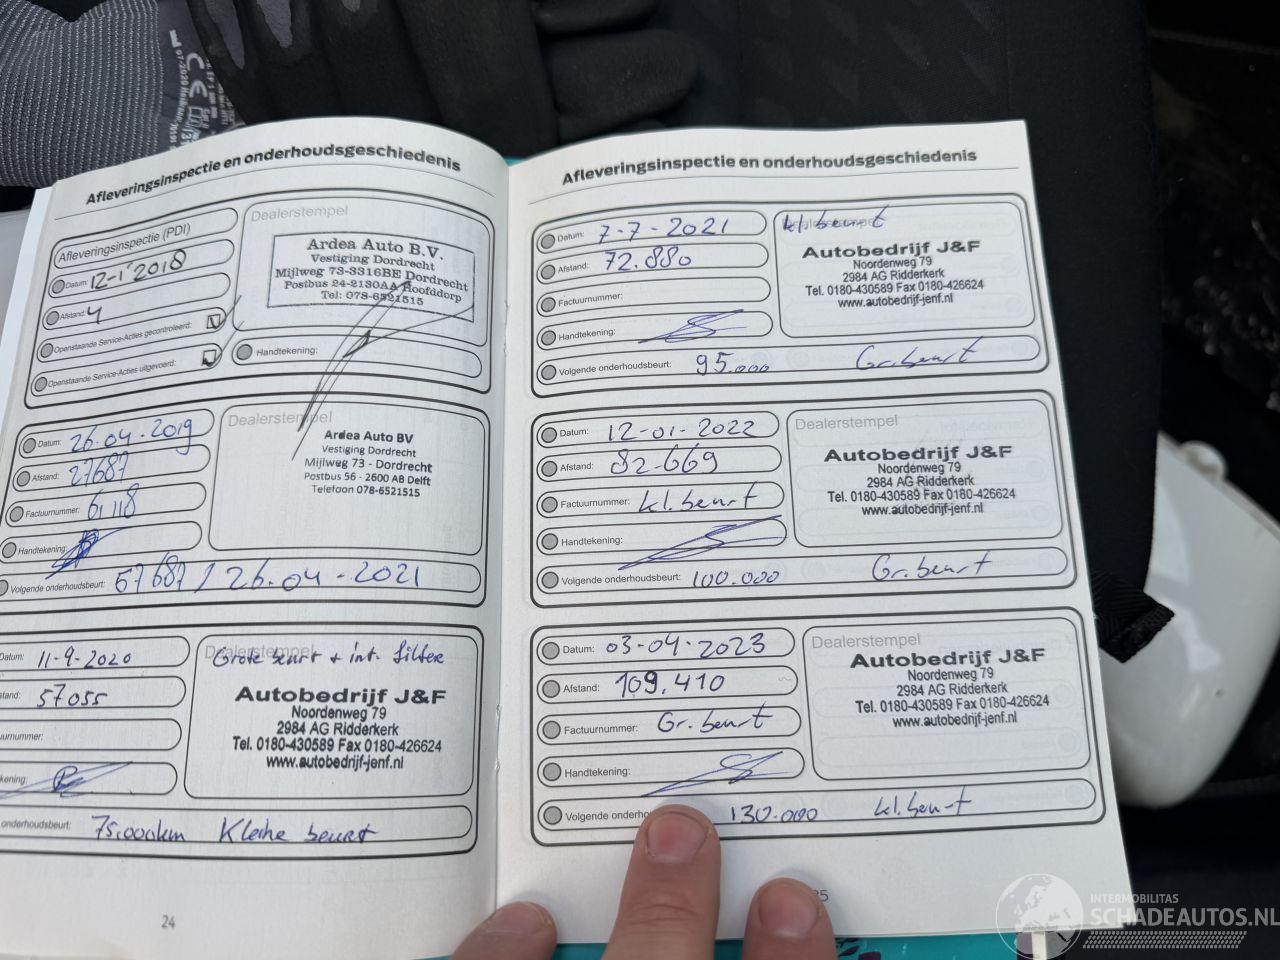 Afleveringsinspectie en onderhoudsgeschiedenis
Afleveringsinspectie (PDI)
Datum: 12-1-2018
Afstand: 4
Openstaande Service-Acties gecontroleerd:
Openstaande Service-Acties uitgevoerd:
Dealerstempel
Ardea Auto B.V.
Vestiging Dordrecht
Mijlweg 73-3316BE Dordrecht
Postbus 24-2130AA Hoofddorp
Tel: 078-6521515
Handtekening:
Datum: 26-04-2019
Afstand: 27687
Factuurnummer: 6118
Handtekening:
Volgende onderhoudsbeurt: 57687 / 26-04-2021
Dealerstempel
Ardea Auto BV
Vestiging Dordrecht
Mijlweg 73 - Dordrecht
Postbus 56 - 2600 AB Delft
Telefoon 078-6521515
Datum: 11-9-2020
stand: 57055
uurnummer:
kening:
onderhoudsbeurt: 75.000km Kleine beurt
Dealerstempel
Grote beurt + int. filter
Autobedrijf J&F
Noordenweg 79
2984 AG Ridderkerk
Tel. 0180-430589 Fax 0180-426624
www.autobedrijf-jenf.nl
24
Afleveringsinspectie en onderhoudsgeschiedenis
Datum: 7-7-2021
Afstand: 72.880
Factuurnummer:
Handtekening:
Volgende onderhoudsbeurt: 95.000 Gr. beurt
Dealerstempel
kl. beurt
Autobedrijf J&F
Noordenweg 79
2984 AG Ridderkerk
Tel. 0180-430589 Fax 0180-426624
www.autobedrijf-jenf.nl
Datum: 12-01-2022
Afstand: 82-669
Factuurnummer: kl. beurt
Handtekening:
Volgende onderhoudsbeurt: 100.000 Gr. beurt
Dealerstempel
Autobedrijf J&F
Noordenweg 79
2984 AG Ridderkerk
Tel. 0180-430589 Fax 0180-426624
www.autobedrijf-jenf.nl
Datum: 03-04-2023
Afstand: 109.410
Factuurnummer: Gr. beurt
Handtekening:
Volgende onderho 130.000 kl. beurt
Dealerstempel
Autobedrijf J&F
Noordenweg 79
2984 AG Ridderkerk
Tel. 0180-430589 Fax 0180-426624
www.autobedrijf-jenf.nl
INTERMOBILITAS
SCHADEAUTOS.NL